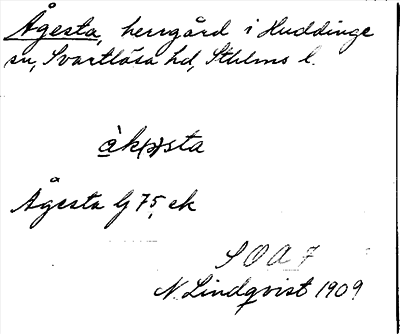 Ågesta, herrgård i Huddinge
sn, Svartlösa hd, Sthlms l.
àk(ə)sta
Ågesta G 75, ek
S O A 7
N. Lindqvist 1909